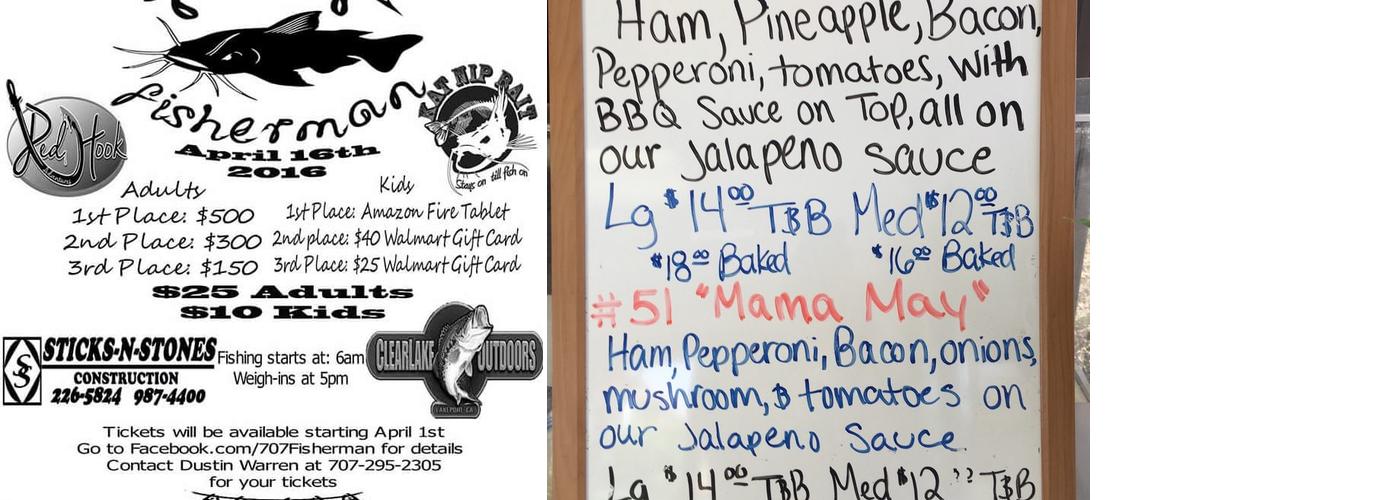 fisherman
Red Hook
KAT NIP BAIT
Stays on till fish on
April 16th
2016
Adults
1st Place: $500
2nd Place: $300
3rd Place: $150
Kids
1st Place: Amazon Fire Tablet
2nd place: $40 Walmart Gift Card
3rd Place: $25 Walmart Gift Card
$25 Adults
$10 Kids
STICKS-N-STONES
CONSTRUCTION
226-5824 987-4400
Fishing starts at: 6am
Weigh-ins at 5pm
CLEARLAKE OUTDOORS
LAKEPORT, CA
Tickets will be available starting April 1st
Go to Facebook.com/707Fisherman for details
Contact Dustin Warren at 707-295-2305
for your tickets
Ham, Pineapple, Bacon,
Pepperoni, tomatoes, with
BBQ Sauce on Top, all on
our Jalapeno sauce
Lg $14.00 T&B Med $12.00 T&B
$18.00 Baked $16.00 Baked
#51 "Mama May"
Ham, Pepperoni, Bacon, onions,
mushroom, & tomatoes on
our Jalapeno Sauce.
Lg $14.00 T&B Med $12 T&B